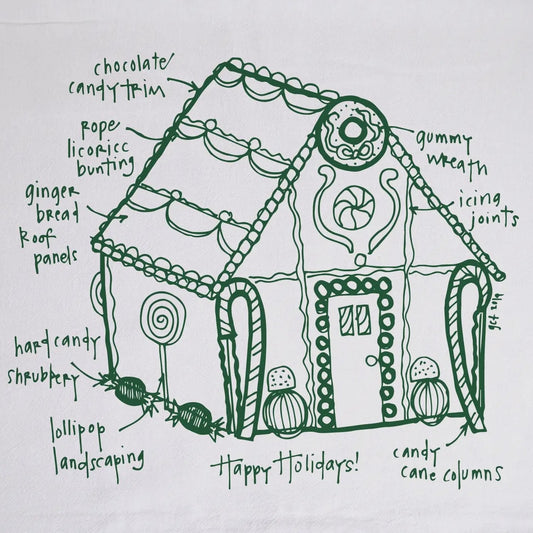 chocolate
candy trim
rope
licoricc
bunting
ginger
bread
roof
panels
hard candy
shrubbery
lollipop
landscaping
Happy Holidays!
gummy
wreath
icing
joints
candy
cane columns